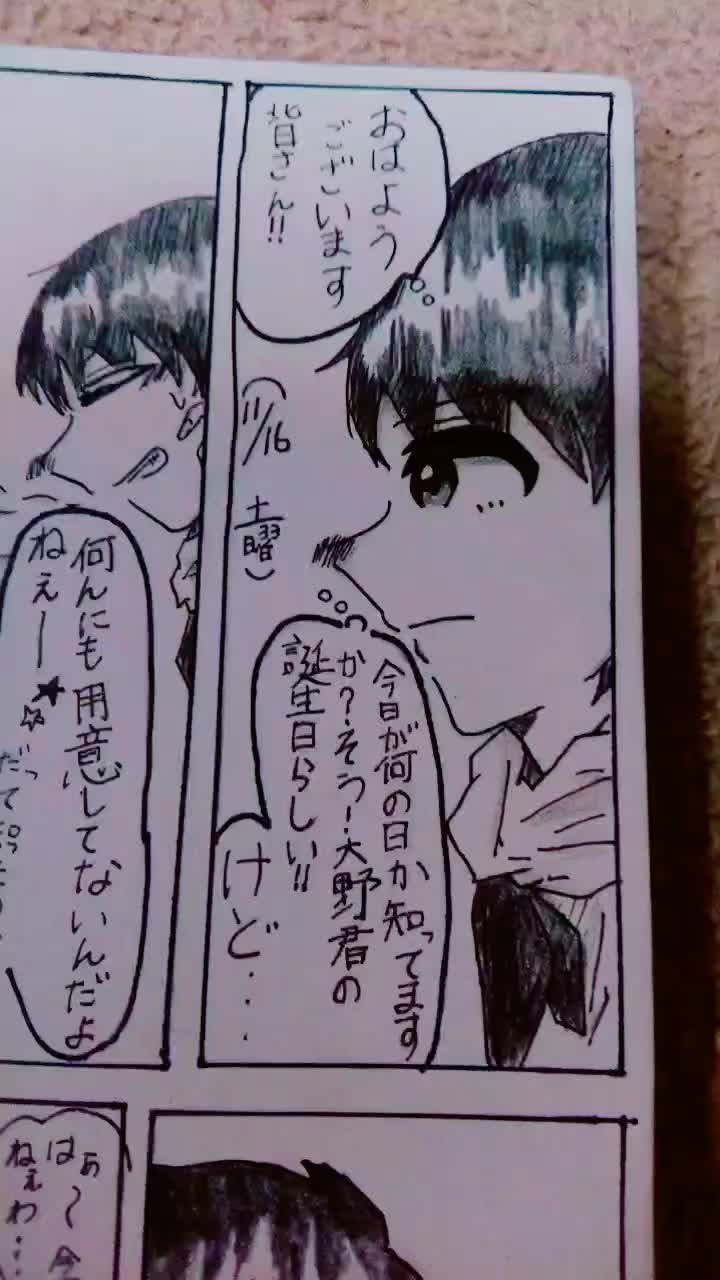 おはよう
ございます
皆さん!!
(11/16
土曜)
今日が何の日か知ってます
か?そう!大野君の
誕生日らしい!!
けど...
何んにも用意してないんだよ
ねぇー★☆
だって
ぁ〜今
は
ねぇわ...